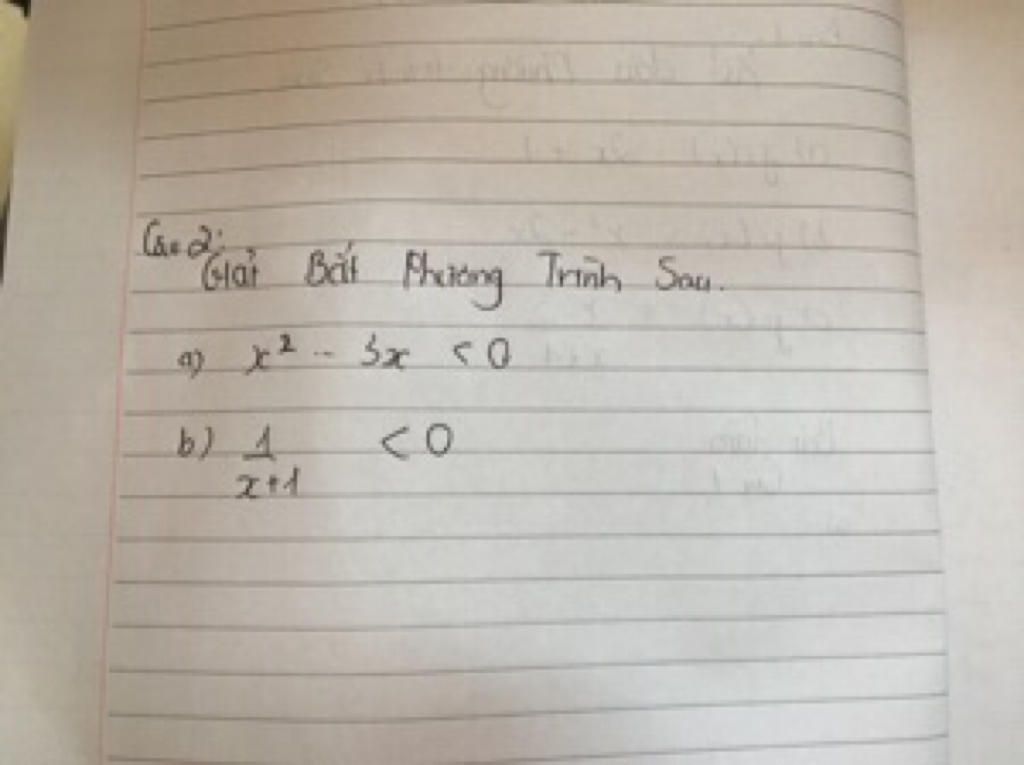 Câu 2:
Giải Bất Phương Trình Sau.
a) x² - 3x < 0
b) 1/x+1 < 0